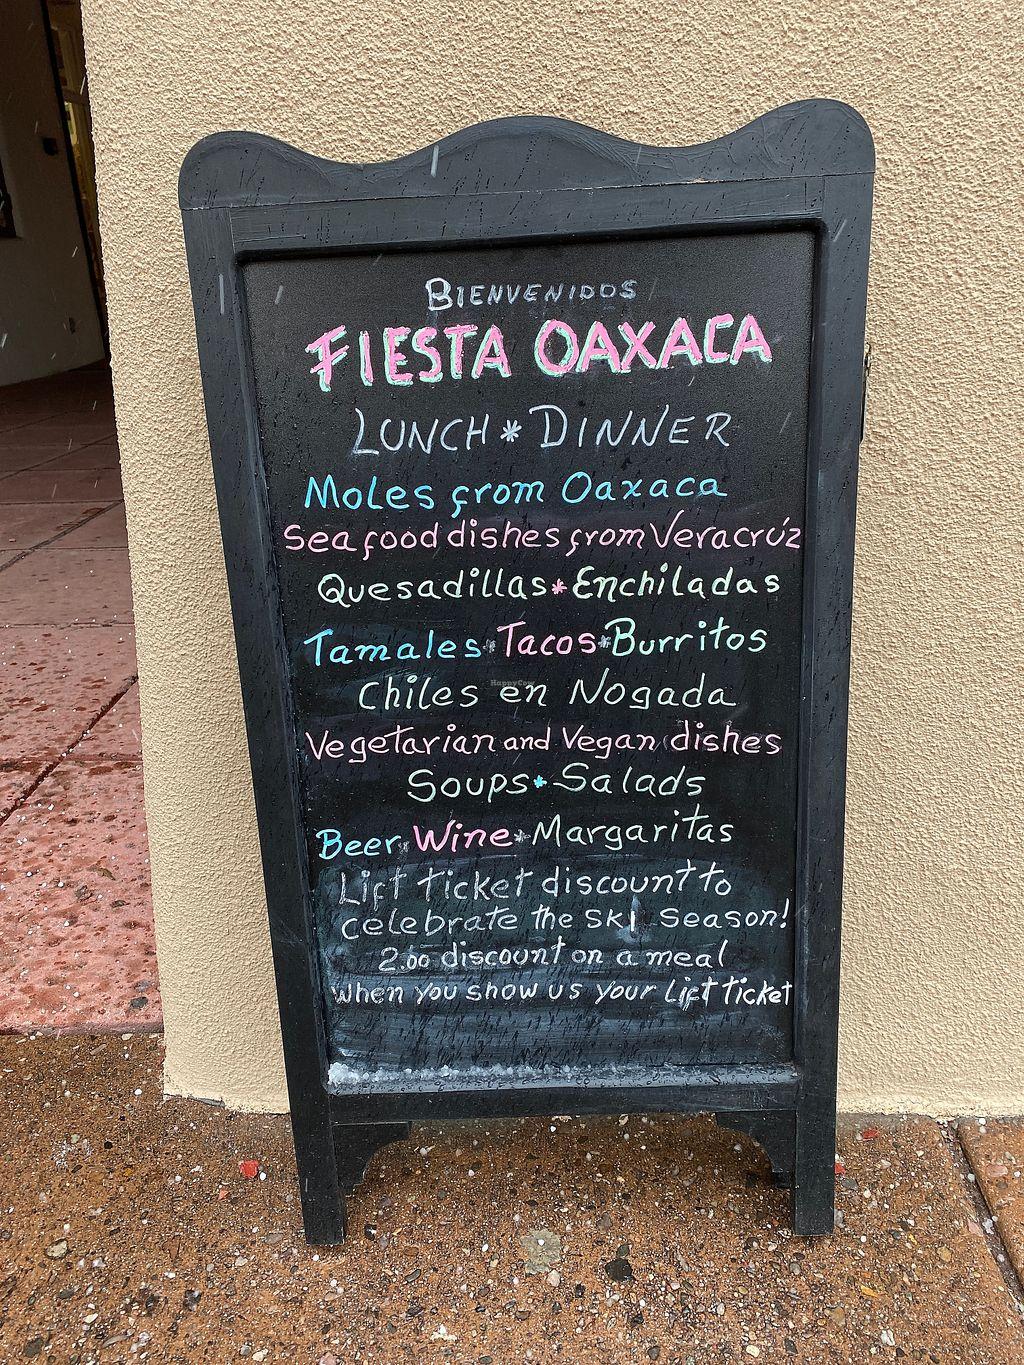 BIENVENIDOS
FIESTA OAXACA
LUNCH * DINNER
Moles from Oaxaca
Seafood dishes from Veracrúz
Quesadillas * Enchiladas
Tamales * Tacos * Burritos
Chiles en Nogada
HappyCow
Vegetarian and Vegan dishes
Soups * Salads
Beer * Wine * Margaritas
Lift ticket discount to
celebrate the ski season!
2.00 discount on a meal
when you show us your Lift ticket